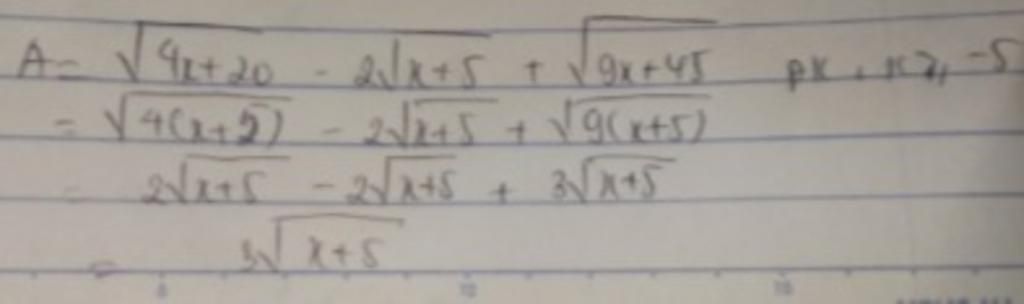 A = √(4x+20) - 2√(x+5) + √(9x+45) ĐK : x ≥ -5
= √(4(x+5)) - 2√(x+5) + √(9(x+5))
= 2√(x+5) - 2√(x+5) + 3√(x+5)
= 3√(x+5)